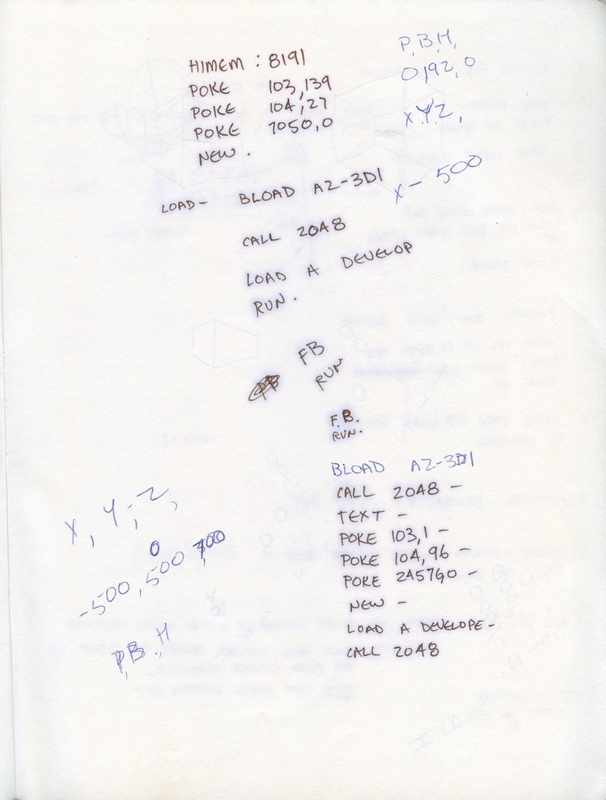 HIMEM : 8191
POKE 103,139
POKE 104,27
POKE 7050,0
NEW .
P, B, H,
0,192,0
X,Y,Z,
X - 500
LOAD - BLOAD A2-3D1
CALL 2048
LOAD A DEVELOP
RUN .
FB
RUN
F.B.
RUN.
BLOAD A2-3D1
CALL 2048 -
TEXT -
POKE 103,1 -
POKE 104,96 -
POKE 245760 -
NEW -
LOAD A DEVELOPE -
CALL 2048
X, Y, -Z,
0
-500, 500
P, B, H